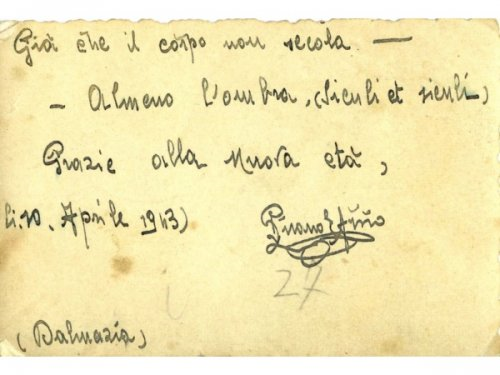 Già che il corpo non secola —
- Almeno l'ombra, (siculi et siculi)
Grazie alla nuova età,
li. 10. Aprile 1943)
27
(Dalmazia)